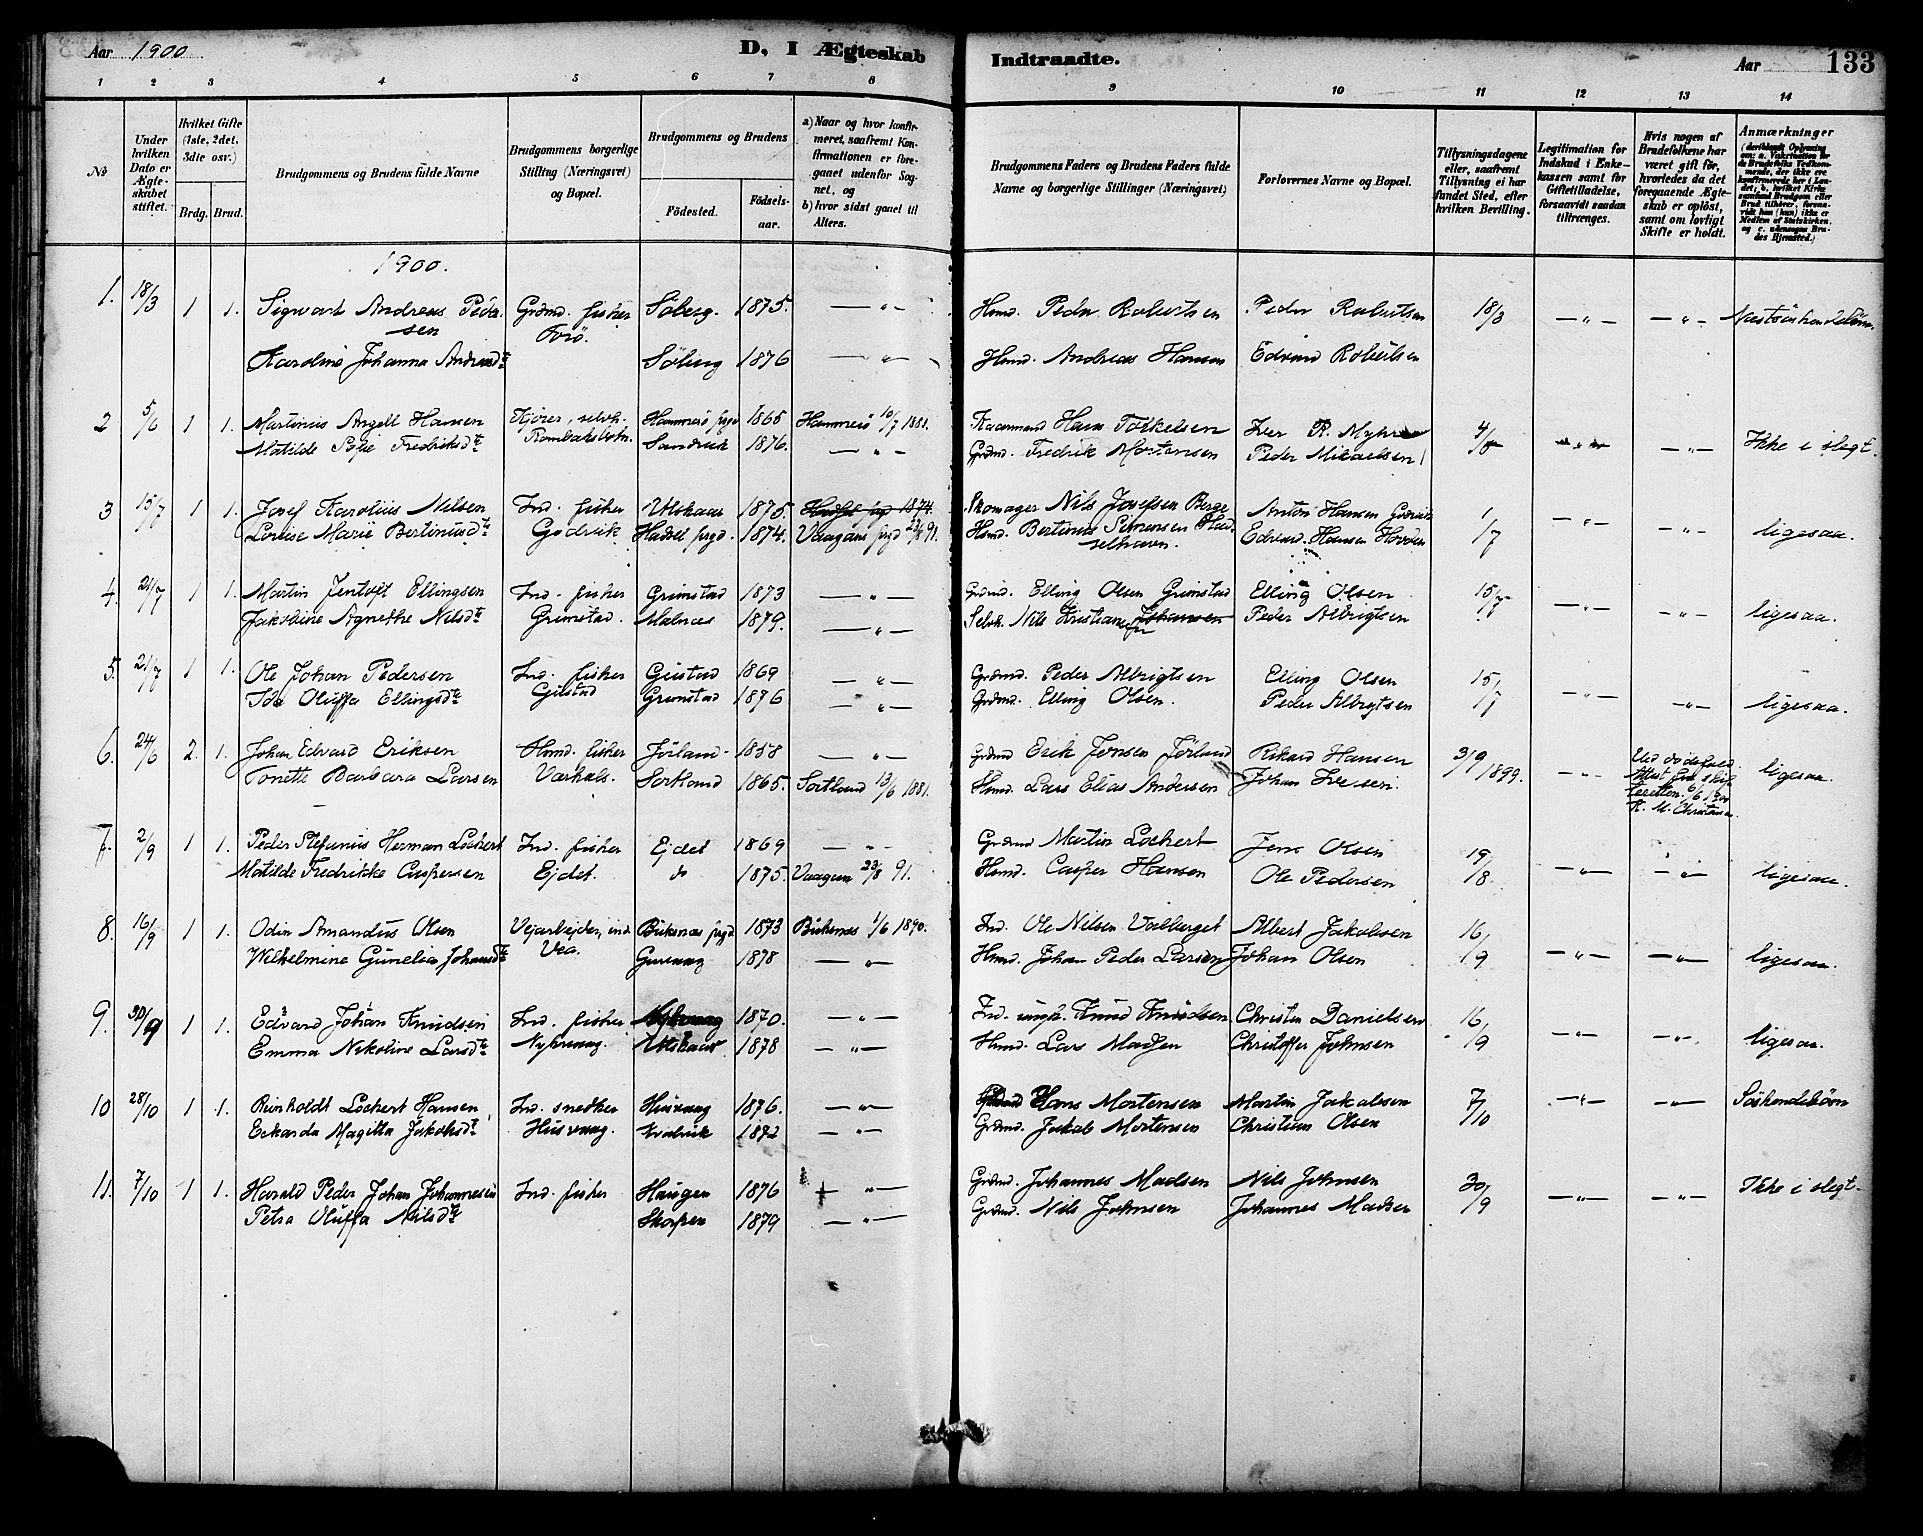 Aar 1900 D, I Ægteskab Indtraadte. Aar 133
1 2 3 4 5 6 7 8 9 10 11 12 13 14
No
Under hvilken Dato er Ægte-skabet stiftet.
Hvilket Gifte (1ste, 2det, 3die osv.)
Brdg. Brud.
Brudgommens og Brudens fulde Navne
Brudgommens borgerlige Stilling (Næringsvei) og Bopæl.
Brudgommens og Brudens
Födested. Födsels-aar.
a) Naar og hvor konfir-meret, saafremt Kon-firmationen er fore-gaaet udenfor Sog-net, og
b) hvor sidst gaaet til Alters.
Brudgommens Faders og Brudens Faders fulde Navne og borgerlige Stillinger (Næringsvei)
Forlovernes Navne og Bopæl.
Tillysningsdagene eller, saafremt Tillysning ei har fundet Sted, efter hvilken Bevilling.
Legitimation for Indskud i Enke-kassen samt for Giftetilladelse, forsaavidt saadan tiltrænges.
Hvis nogen af Brudefolkene har været gift för, hvorledes da det foregaaende Ægte-skab er oplöst, samt om lovligt Skifte er holdt.
Anmærkninger
1900.
1. 18/3 1 1. Sigvart Andreas Peder- Grdmd. fisher Söberg. 1875. — " — Hmd. Peder Robertsen Peder Robertsen 18/3 — " — — " —
sen
Karoline Johanna Andreasdt. Söberg 1876 — " — Hmd. Andreas Hansen Edvard Robertsen
2 5/6 1 1. Martinus Angell Hansen 1865 Hammerö 10/7 1881. Hans Torkelsen Iver R. Myhre — " —
Matilde Sofie Fredriksdt. Sandvik 1876. — " — Grdmd. Fredrik Mortensen Peder Mikaelsen — " — Ikke i slegt.
3 15/7 1 1. Josef Karolius Nilsen Ind. fisher Utskaar 1875. 1874. Skomager Nils Josefsen Berge Anton Hansen 1/7 — " — — " —
Lovise Marie Bertinusdt. Godvik Hadsel prgd. 1874. Vaagans prgd 23/8 91. Hmd. Bertinus Simensen Edvard Hansen Hovden ligesaa.
4. 21/7 1 1. Martin Jentoft Ellingsen Ind. fisher Grimstad 1873 — " — Grdmd. Elling Olsen Grimstad Elling Olsen 15/7 — " — — " —
Jakobine Agnethe Nilsdt. Grimstad. Malnes 1879. — " — Selvh. Nils Kristiansen Johansen Peder Albrigtsen ligesaa.
5. 21/7 1 1. Ole Johan Pedersen Ind. fisher Gustad 1869 — " — Grdmd. Peder Albrigtsen Elling Olsen 15/7 — " —
Ida Oluffa Ellingsdt. Grimstad 1876 — " — Grdmd. Elling Olsen. Peder Albrigtsen — " — ligesaa.
6. 24/6 2. 1. Johan Edvard Eriksen Hmd. fisher Jörland 1858 — " — Grdmd Erik Jensen Jörland Rikard Hansen 3/9 1899. — " — Ved dödsfald.
Tonette Barbara Larsen Sortland 1865. Sortland 13/6 1881. Hmd. Lars Elias Andersen Johan Iversen. ligesaa.
7. 2/9 1 1. Peder Stefanus Herman Lockert Ind. fisher Ejdet 1869 — " — Grdmd Martin Lockert Jens Olsen 19/8 — " — — " —
Matilde Fredrikke Caspersen Ejdet. do 1875. Vaagan 23/8 91. Hmd. Casper Hansen Ole Pedersen ligesaa.
8. 16/9 1 1. Odin Amandus Olsen Vejarbejder, ind. Buksnæs prgd 1873 Buksnes 1/6 1890. Ind. Ole Nilsen Valberget Albert Jakobsen 16/9 — " — — " —
Wilhelmine Gunelia Johansdt. Vea. 1878 — " — Hmd. Johan Peder Larsen Johan Olsen ligesaa.
9. 30/9 1 1. Edvard Johan Knudsen Ind. fisher Nykvaag 1870. — " — Ind. ungk. Knud Knudsen Christen Danielsen 16/9 — " — — " —
Emma Nikoline Larsdt. Nykvaag. Utskaar 1878 — " — Hmd. Lars Madsen Christoffer Johnsen ligesaa.
10 28/10 1 1. Reinholdt Lockert Hansen Ind. snedker Husvaag 1876. — " — Hans Mortensen Martin Jakobsen 7/10 — " — — " — Söskendebörn
Eckarda Magitta Jakobsdt. Husvaag. 1872 — " — Grdmd. Jakob Mortensen Christian Olsen
11. 7/10 1 1. Harald Peder Johan Johannesen Ind. fisher Haugen 1876 — " — Grdmd. Johannes Madsen Nils Johnsen 30/9 — " — — " — Ikke i slegt.
Petra Oluffa Nilsdt. Skorpen 1879 — " — Grdmd. Nils Johnsen Johannes Madsen